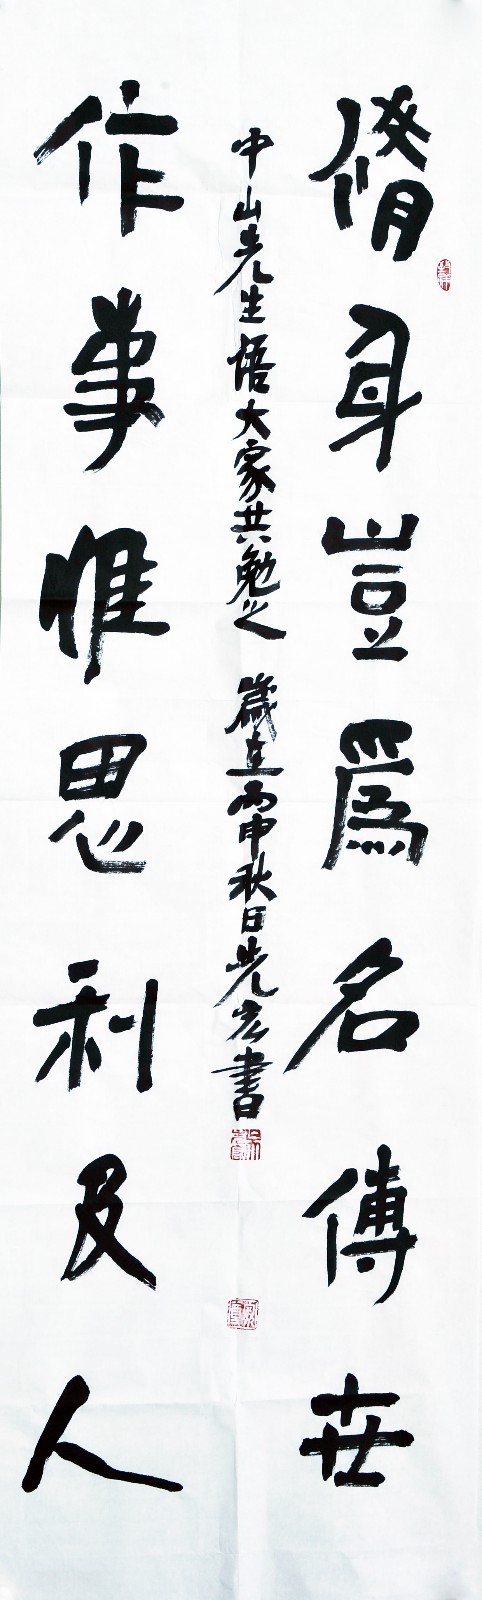 脩身豈爲名傳世
中山先生語大家共勉之 歲在丙申秋日光宏書
作事惟思利及人